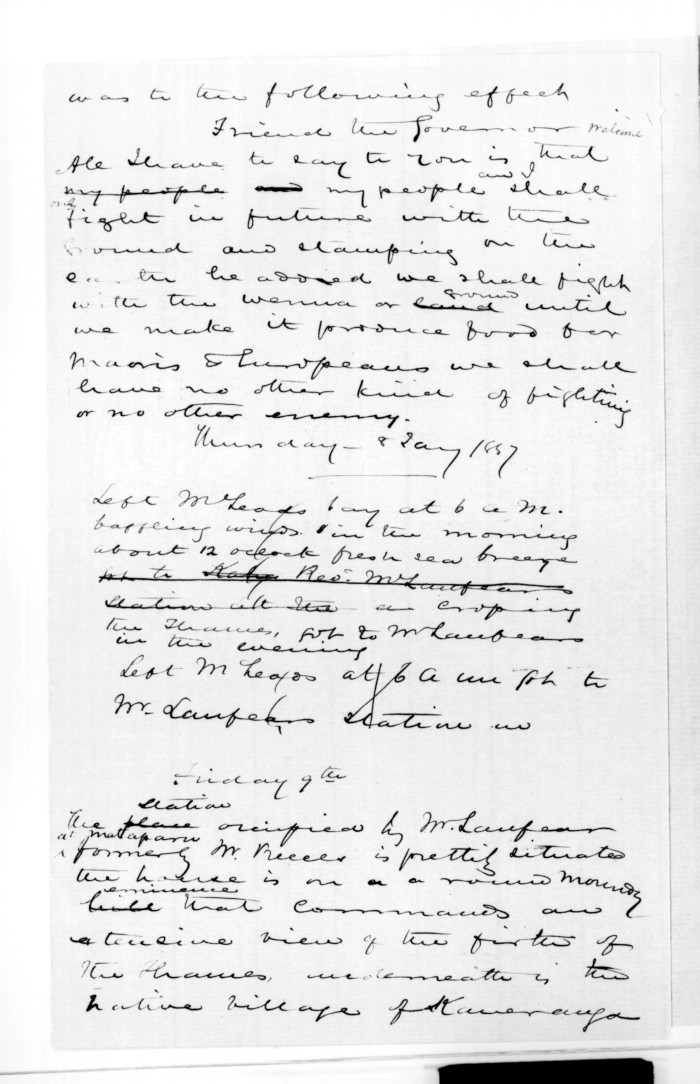 was to the following effect
Friend the Governor welcome
All I have to say to you is that
my people and my people and I shall
only fight in future with the
ground and stamping on the
earth he added we shall fight
with the wenua or land ground until
we make it produce food for
Maoris & Europeans we shall
have no other kind of fighting
or no other enemy.
Thursday - 8 Jany 1857
Left McLeods bay at 6 a M.
baffling winds in the morning
about 12 oclock fresh sea breeze
got to Revd. Mr Lanfears
station at the in croping
the Thames, got to Mr Lanfears
in the evening
Left McLeods at 6 a m got to
Mr. Lanfears station in
Friday 9th
station
The place occupied by Mr. Lanfear
at mataparu
formerly Mr. Preeces is prettily situated
the house is on a a round moundy
eminence
hill that commands an
extensive view of the firth of
the Thames, underneath is the
native village of Kaueranga